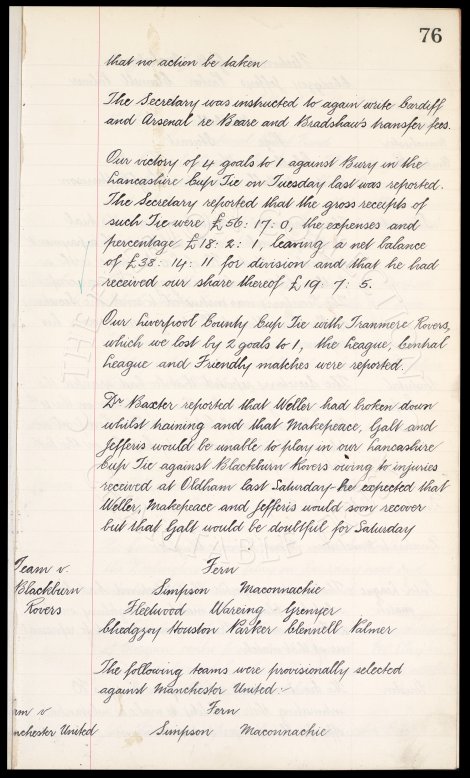 76
that no action be taken
The Secretary was instructed to again write Cardiff
and Arsenal re Beare and Bradshaws transfer fees.
Our victory of 4 goals to 1 against Bury in the
Lancashire Cup Tie on Tuesday last was reported.
The Secretary reported that the gross receipts of
such Tie were £56: 17: 0, the expenses and
percentage £18: 2: 1, leaving a net balance
of £38: 14: 11 for division and that he had
received our share thereof £19: 7: 5.
Our Liverpool County Cup Tie with Tranmere Rovers,
which we lost by 2 goals to 1, the League, Central
League and Friendly matches were reported.
Dr Baxter reported that Weller had broken down
whilst training and that Makepeace, Galt and
Jefferis would be unable to play in our Lancashire
Cup Tie against Blackburn Rovers owing to injuries
received at Oldham last Saturday - he expected that
Weller, Makepeace and Jefferis would soon recover
but that Galt would be doubtful for Saturday
Team v. Fern
Blackburn Simpson Maconnachie
Rovers Fleetwood Wareing Grenyer
Chedgzoy Houston Parker Clennell Palmer
The following teams were provisionally selected
against Manchester United :-
am v Fern
nchester United Simpson Maconnachie